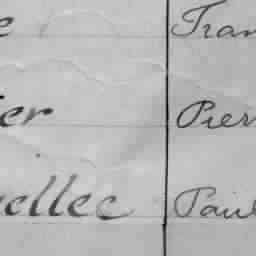 e Fran
ier Pierr
uellec Paul